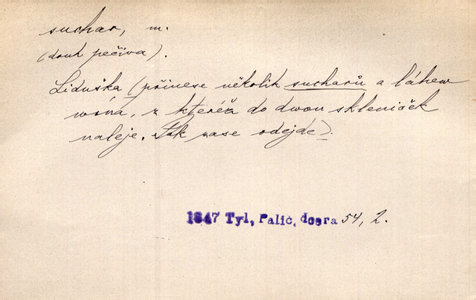 suchar, m.
(druh pečiva).
Liduška (přinese několik sucharů a láhev
vína, z kteréž do dvou skleniček
naleje. Pak zase odejde).
1847 Tyl, Palič. dcera 54, 2.